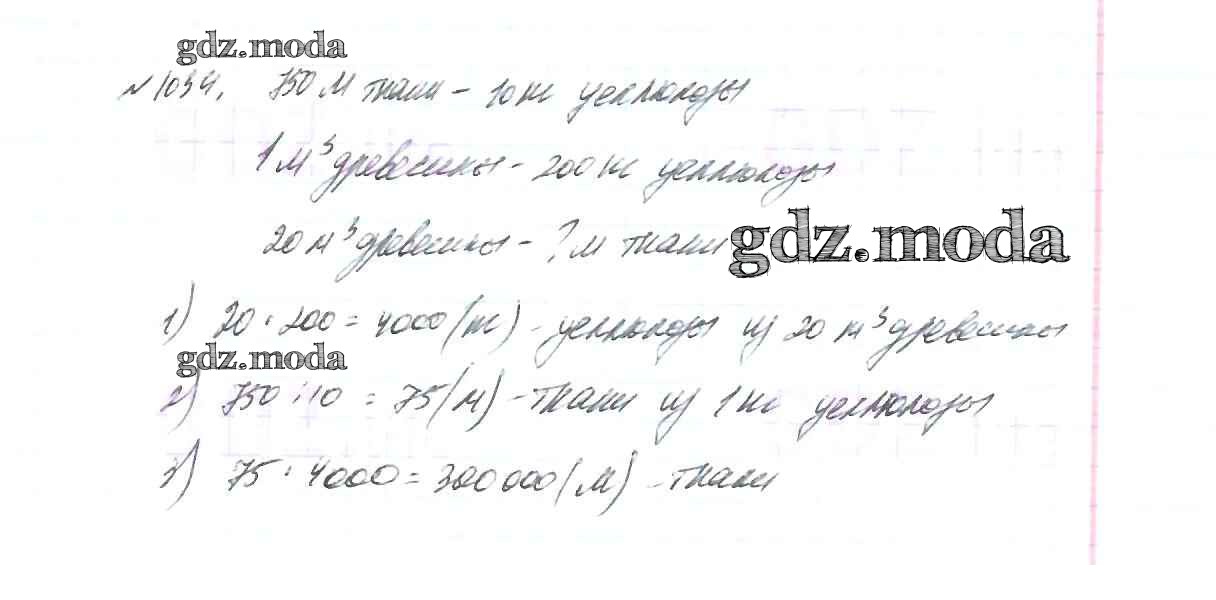 gdz.moda
№1034. 750 м ткани - 10 кг целлюлозы
1 м³ древесины - 200 кг целлюлозы
20 м³ древесины - ? м ткани
gdz.moda
1) 20 · 200 = 4000 (кг) - целлюлозы из 20 м³ древесины
gdz.moda
2) 750 : 10 = 75 (м) - ткани из 1 кг целлюлозы
3) 75 · 4000 = 300 000 (м) - ткани